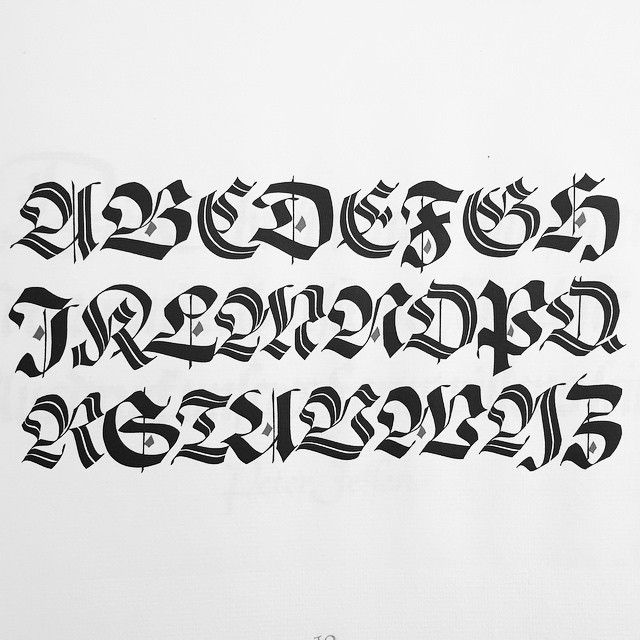 ABCDEFGH
JKLMNOPQ
RSTUVWYZ